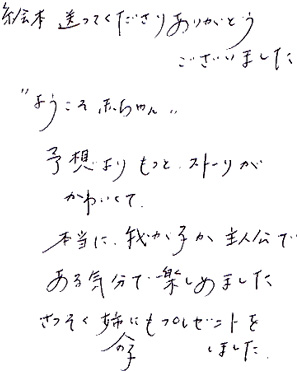 絵本 送ってくださりありがとう
ございました
"ようこそ赤ちゃん"
予想よりもっと、ストーリが
かわいくて、
本当に、我が子が主人公で
ある気分で楽しめました
さっそく姉の子にもプレゼントを
しました。